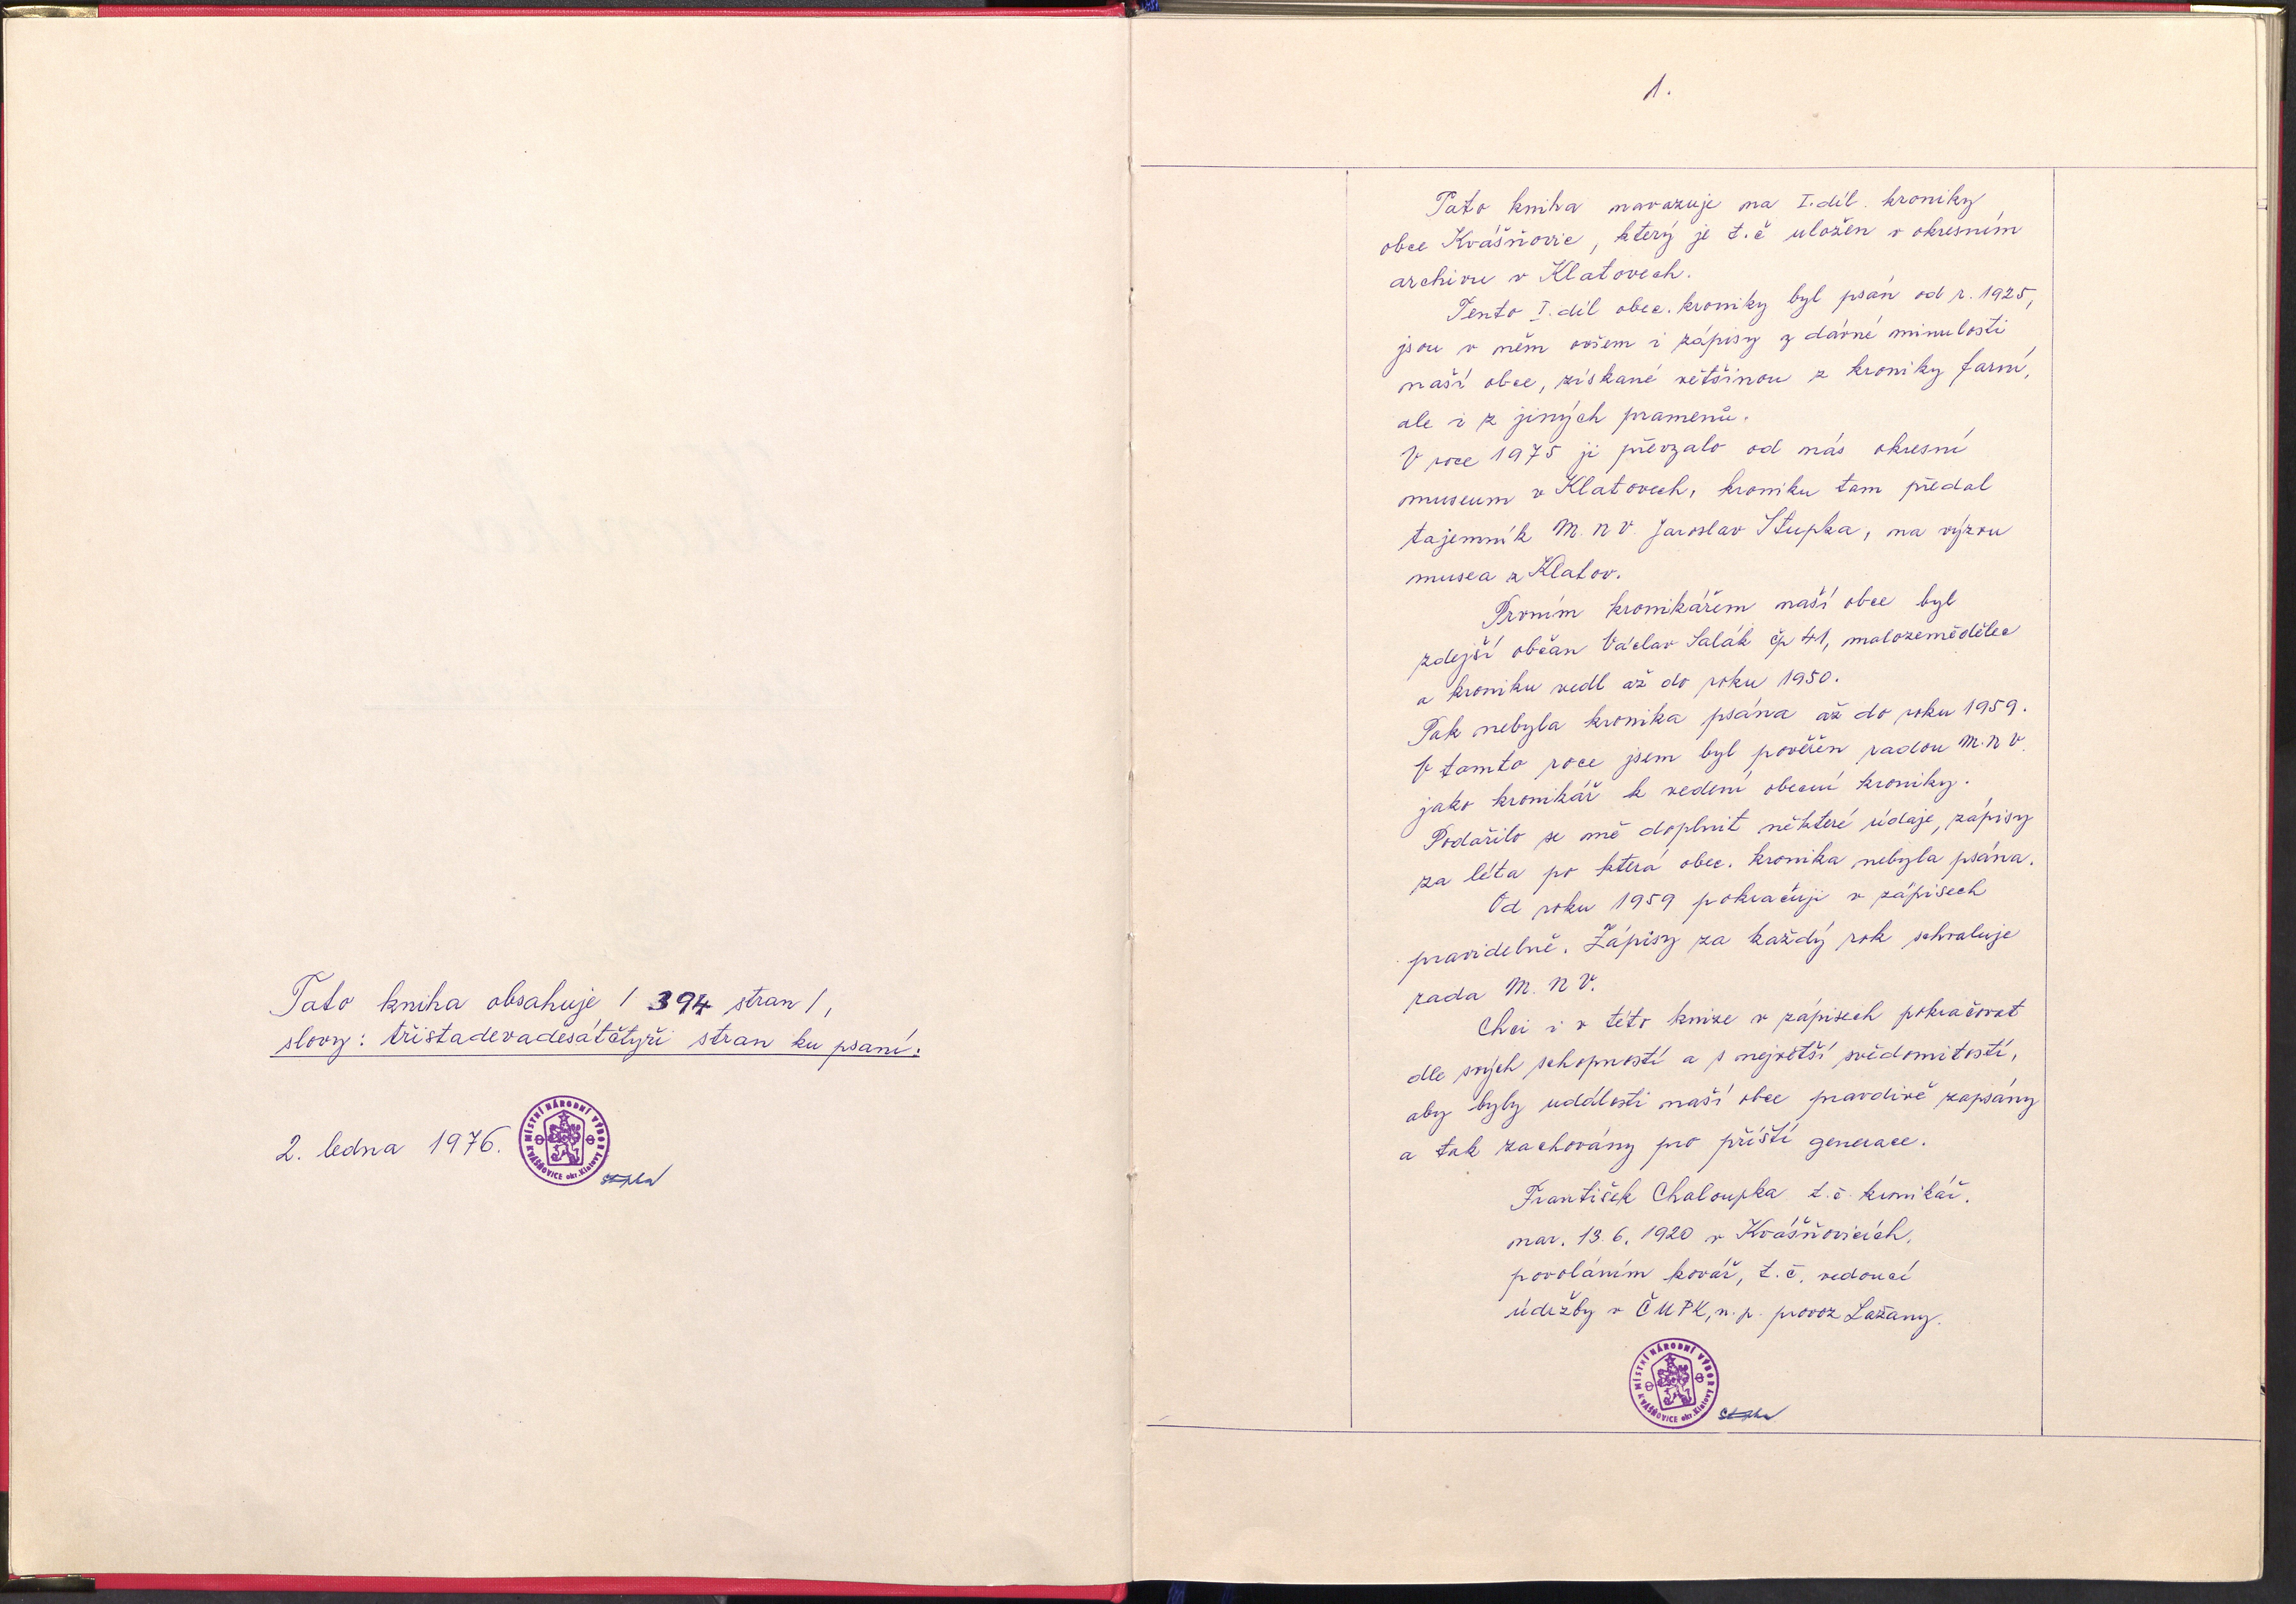 Tato kniha obsahuje / 394 stran /,
slovy: třistadevadesátčtyři stran ku psaní.
2. ledna 1976.
MÍSTNÍ NÁRODNÍ VÝBOR
KVÁŠŇOVICE okr. Klatovy
Stupka
1.
Tato kniha navazuje na I. díl. kroniky
obce Kvášňovic, který je t.č uložen v okresním
archivu v Klatovech.
Tento I. díl obec. kroniky byl psán od r. 1925,
jsou v něm ovšem i zápisy z dávné minulosti
naší obce, získané většinou z kroniky farní,
ale i z jiných pramenů.
V roce 1975 ji převzalo od nás okresní
museum v Klatovech, kroniku tam předal
tajemník M.N.V. Jaroslav Stupka, na výzvu
musea z Klatov.
Prvním kronikářem naší obce byl
zdejší občan Václav Salák čp 41, malozemědělec
a kroniku vedl až do roku 1950.
Pak nebyla kronika psána až do roku 1959.
V tomto roce jsem byl pověřen radou M.N.V.
jako kronikář k vedení obecní kroniky.
Podařilo se mě doplnit některé údaje, zápisy
za léta po která obec. kronika nebyla psána.
Od roku 1959 pokračuji v zápisech
pravidelně. Zápisy za každý rok schvaluje
rada M.N.V.
Chci i v této knize v zápisech pokračovat
dle svých schopností a s největší svědomitostí,
aby byly události naší obce pravdivě zapsány
a tak zachovány pro příští generace.
František Chaloupka t.č. kronikář.
nar. 13.6.1920 v Kvášňovicích.
povoláním kovář, t.č. vedoucí
údržby v ČUPK, n.p. provoz Lažany.
MÍSTNÍ NÁRODNÍ VÝBOR
KVÁŠŇOVICE okr. Klatovy
Stupka